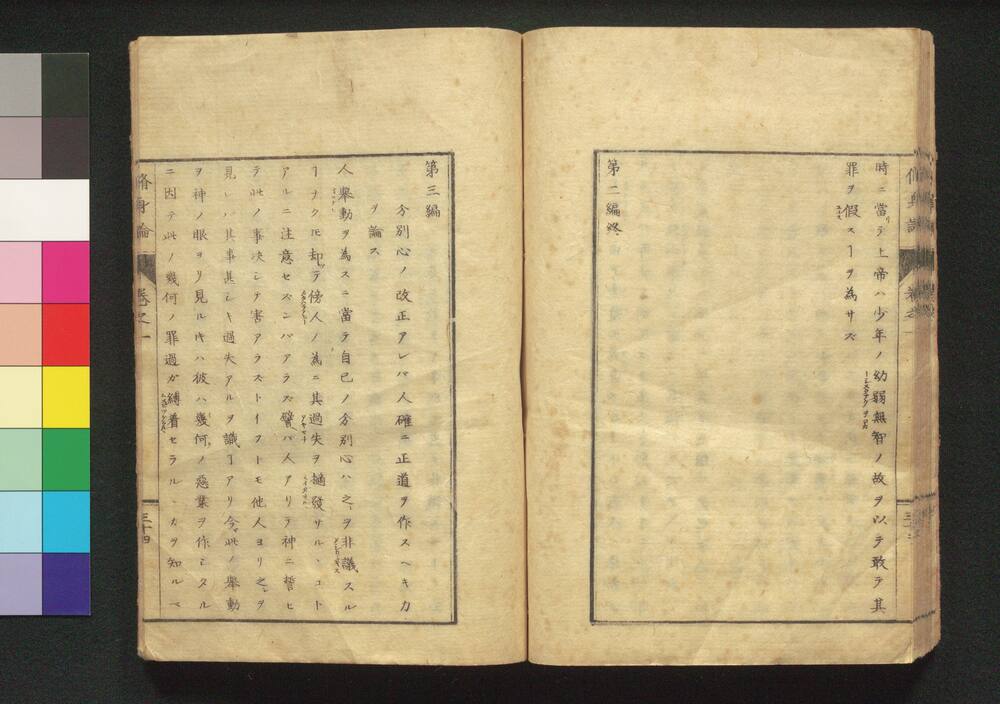 時ニ當リテ上帝ハ少年ノ幼弱無智ノ故ヲ以テ敢テ其
罪ヲ假スヿヲ為サズ
第二編終
第三編
分別心ノ改正アレバ人確ニ正道ヲ作スヘキカ
ヲ論ス
人擧動ヲ為スニ當テ自己ノ分別心ハ之ヲ非議スル
ヿナク圧却テ傍人ノ為ニ其過失ヲ摘發サルヽコト
アルニ注意セズンバアラズ譬バ人アリテ神ニ誓ヒ
テ此ノ事决シテ害アラズトイフトモ他人ヨリ之ヲ
見レバ其事甚シキ過失アルヲ識ヿアリ今此ノ擧動
ヲ神ノ眼ヨリ見ル時ハ彼ハ幾何ノ惡業ヲ作シタル
ニ因テ此ノ幾何ノ罪過ガ縛着セラルヽカヲ知ルベ
脩身論
卷之一
三十四